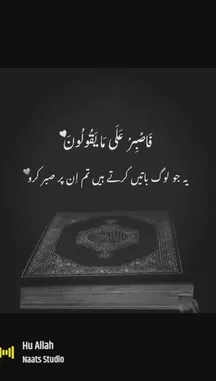 فَاصْبِرْ عَلَىٰ مَا يَقُولُونَ
یہ جو لوگ باتیں کرتے ہیں تم اِن پر صبر کرو
Hu Allah
Naats Studio